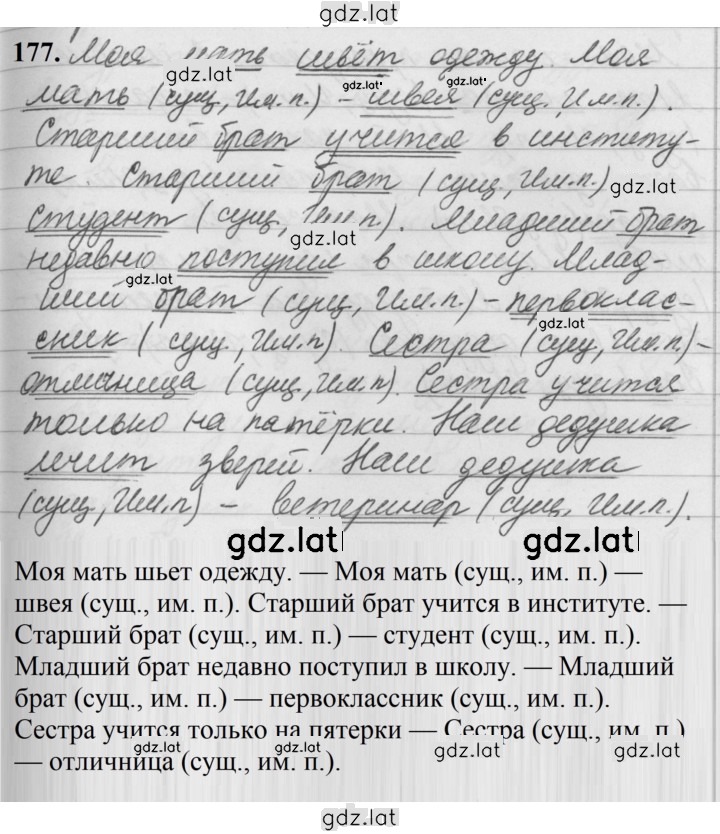 gdz.lat
177. Моя мать шьёт одежду. Моя
gdz.lat gdz.lat
мать (сущ., Им.п.) - швея (сущ. Им.п.).
Старший брат учится в институ-
те. Старший брат (сущ., Им.п.)
gdz.lat
студент (сущ., Им.п.). Младший брат
gdz.lat
недавно поступил в школу. Млад-
gdz.lat
ший брат (сущ., Им.п.) - первоклас-
gdz.lat
сник (сущ., Им.п). Сестра (сущ., Им.п.)-
отличница (сущ., Им.п). Сестра учится
только на пятёрки. Наш дедушка
лечит зверей. Наш дедушка
(сущ., Им.п) - ветеринар (сущ., Им.п.).
gdz.lat gdz.lat
Моя мать шьет одежду. — Моя мать (сущ., им. п.) —
швея (сущ., им. п.). Старший брат учится в институте. —
Старший брат (сущ., им. п.) — студент (сущ., им. п.).
Младший брат недавно поступил в школу. — Младший
брат (сущ., им. п.) — первоклассник (сущ., им. п.).
Сестра учится только на пятерки — Сестра (сущ., им. п.)
gdz.lat gdz.lat gdz.lat gdz.lat
— отличница (сущ., им. п.).
gdz.lat